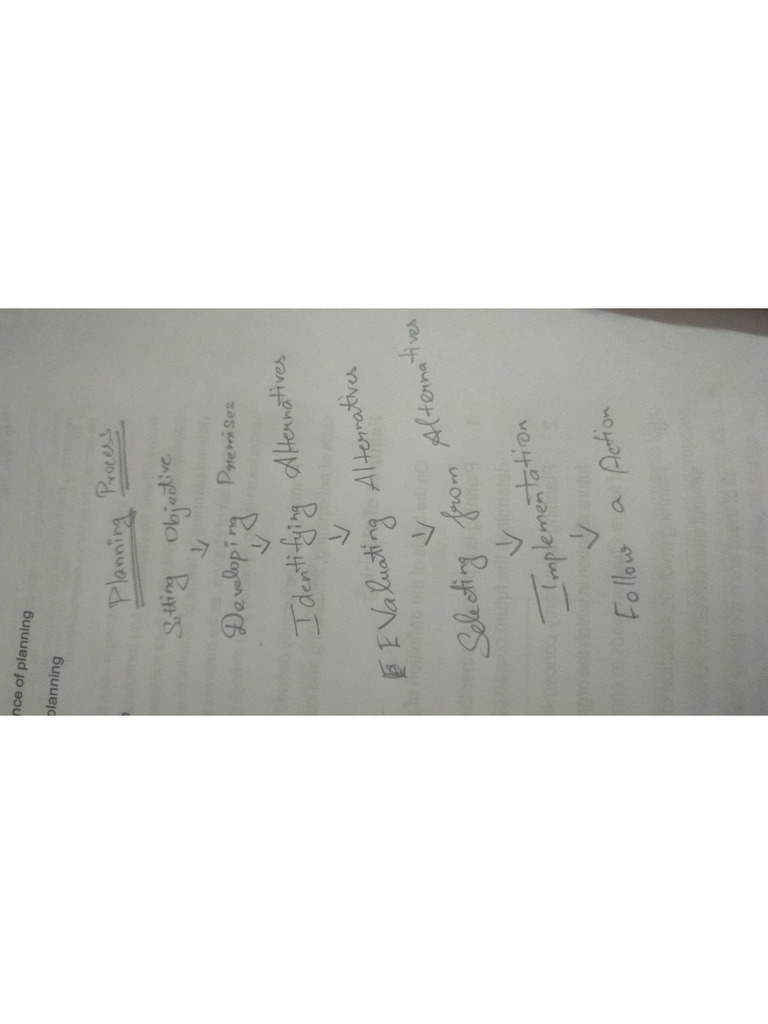 nce of planning
planning
Planning Process
Setting Objective
↓
Developing Premises
↓
Identifying Alternatives
↓
EValuating Alternatives
↓
Selecting from Alternatives
↓
Implementation
↓
Follow a Action